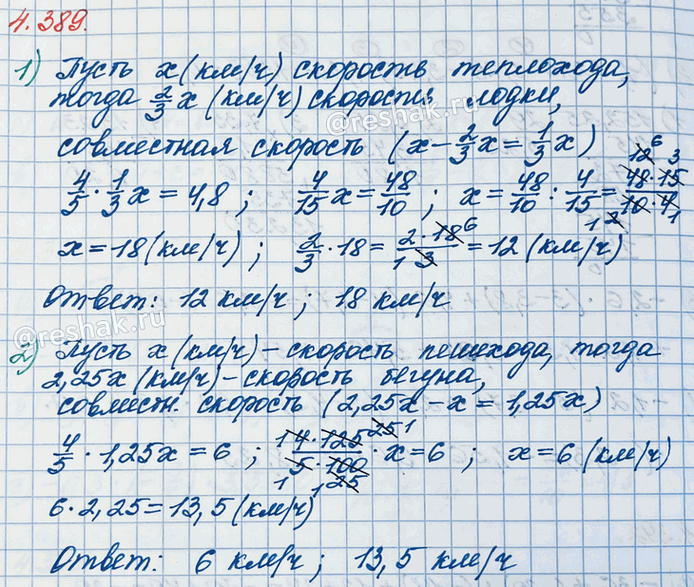 4.389.
1) Пусть x (км/ч) скорость теплохода,
тогда 2/3 x (км/ч) скорость лодки,
совместная скорость (x - 2/3 x = 1/3 x)
4/5 · 1/3 x = 4,8 ; 4/15 x = 48/10 ; x = 48/10 : 4/15 = 48·15/10·4
12 6 3
1 2 1
x = 18 (км/ч) ; 2/3 · 18 = 2·18/3 = 12 (км/ч)
6
1
Ответ: 12 км/ч ; 18 км/ч
2) Пусть x (км/ч) - скорость пешехода, тогда
2,25x (км/ч) - скорость бегуна,
совместн. скорость (2,25x - x = 1,25x)
4/5 · 1,25x = 6 ; 4·125/5·100 · x = 6 ; x = 6 (км/ч)
1 25 1
1 1 25
6 · 2,25 = 13,5 (км/ч)
Ответ: 6 км/ч ; 13,5 км/ч
@reshak.ru
@reshak.ru
@reshak.ru